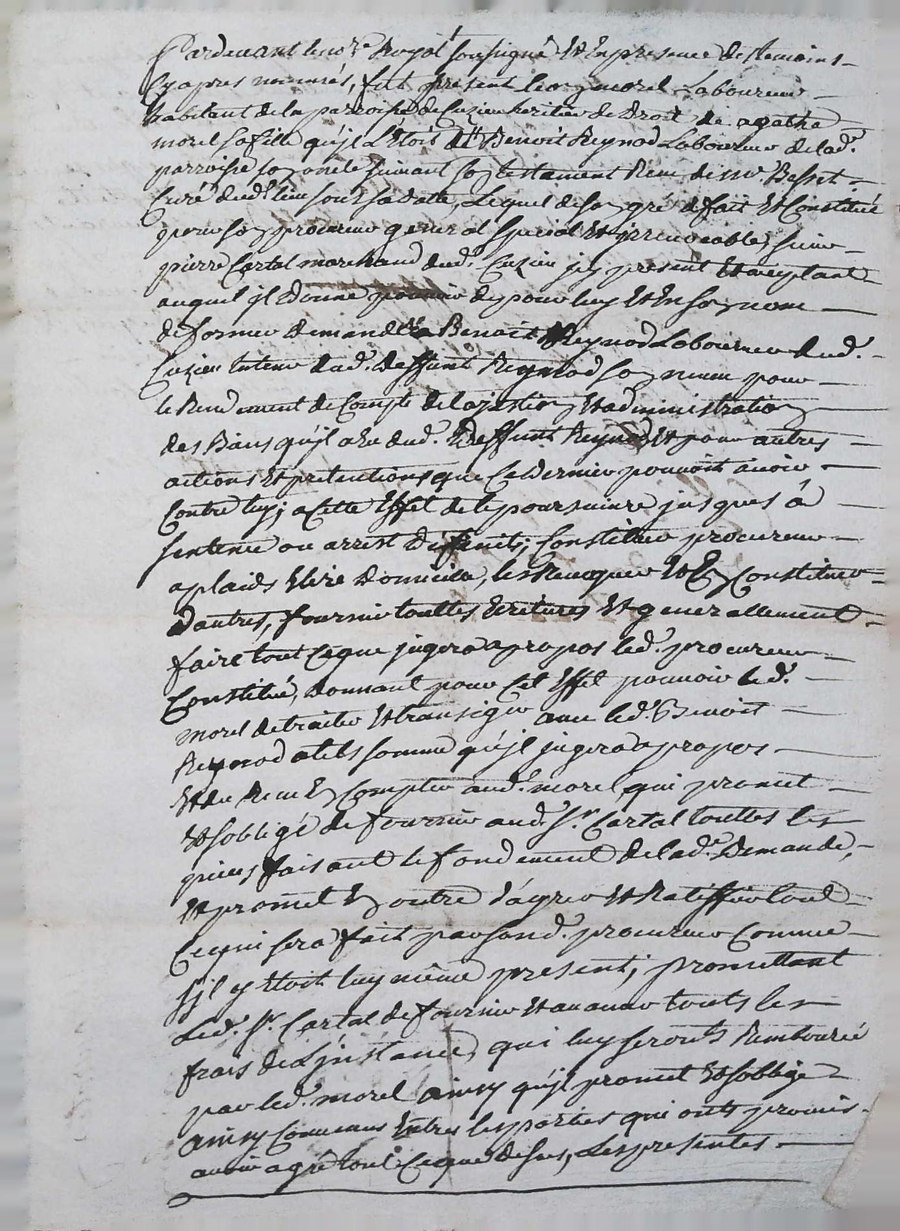 Pardevant le no.re Royal soussigné Et En presence des temoins
Cy apres nommés, fut present leo morel Laboureur
habitant de la parroisse de Cuzieu heritier de Droit de agatha
morel sa fille qu'jl Etois Benoit Reynod Laboureur de lad.
parroisse son oncle suivant son testament Recu de mr Basset
Curé dud. lieu sous sa Datte, Lequel de son gré a fait Et Constitué
pour son procureur general special Et jrrevocable, sieur
pierre Cartal marchand dud. Cuzieu jcy present Et acceptant
auquel jl Donne pouvoir de pour luy Et En son nom
de former Demande a Benoit Reynod Laboureur dud.
Cuzieu dud. deffunt Reynod son pour
le Rendement de Compte de la gestion Et administration
des Biens qu'jl a Eu dud. deffunt Reynod Et pour autres
actions Et pretentions que Ce Dernier pouvoit avoir
Contre luy; a Cette Effet de le poursuivre jusques â
sentence ou arrest Deffinitif; Constituer procureur
a plaids Elire Domicille, les Revoquer Et En Constituer
Dautres, fournir touttes Ecritures Et generallement
faire tout Ce que jugera apropos led. procureur
Constitué, donnant pour Cet Effet pouvoir led.
morel de traiter Et transiger avec led. Benoit
Reynod a telle somme qu'jl jugera apropos
Et du Recu En Compter aud. morel qui promet
Et sobligé de fournir aud. Sr. Cartal touttes les
pieces faisant le fondement de lad. Demande,
Et promet En outre d'agreer Et Ratiffier tout
Ce qui sera fait par sond. procureur Comme
s'jl y Etoit luy même present; promettant
Led. Sr. Cartal de fournir Et avancer touts les
frais de L'jnstance, qui luy seronts Rembourcé
par led. morel ainsy qu'jl promet Et sobligé
ainsy Convenus Entres les parties qui onts promis
avoir agré tout Ce que Dessus, Les presentes